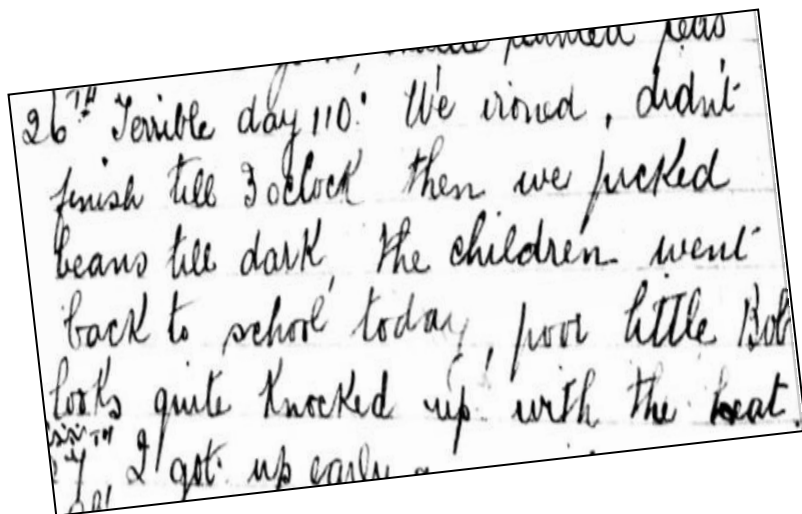 planted peas
26TH Terrible day 110° We ironed, didn't
finish till 3 oclock then we picked
beans till dark, the children went
back to school today, poor little Bob
looks quite knocked up with the heat.
I got up early